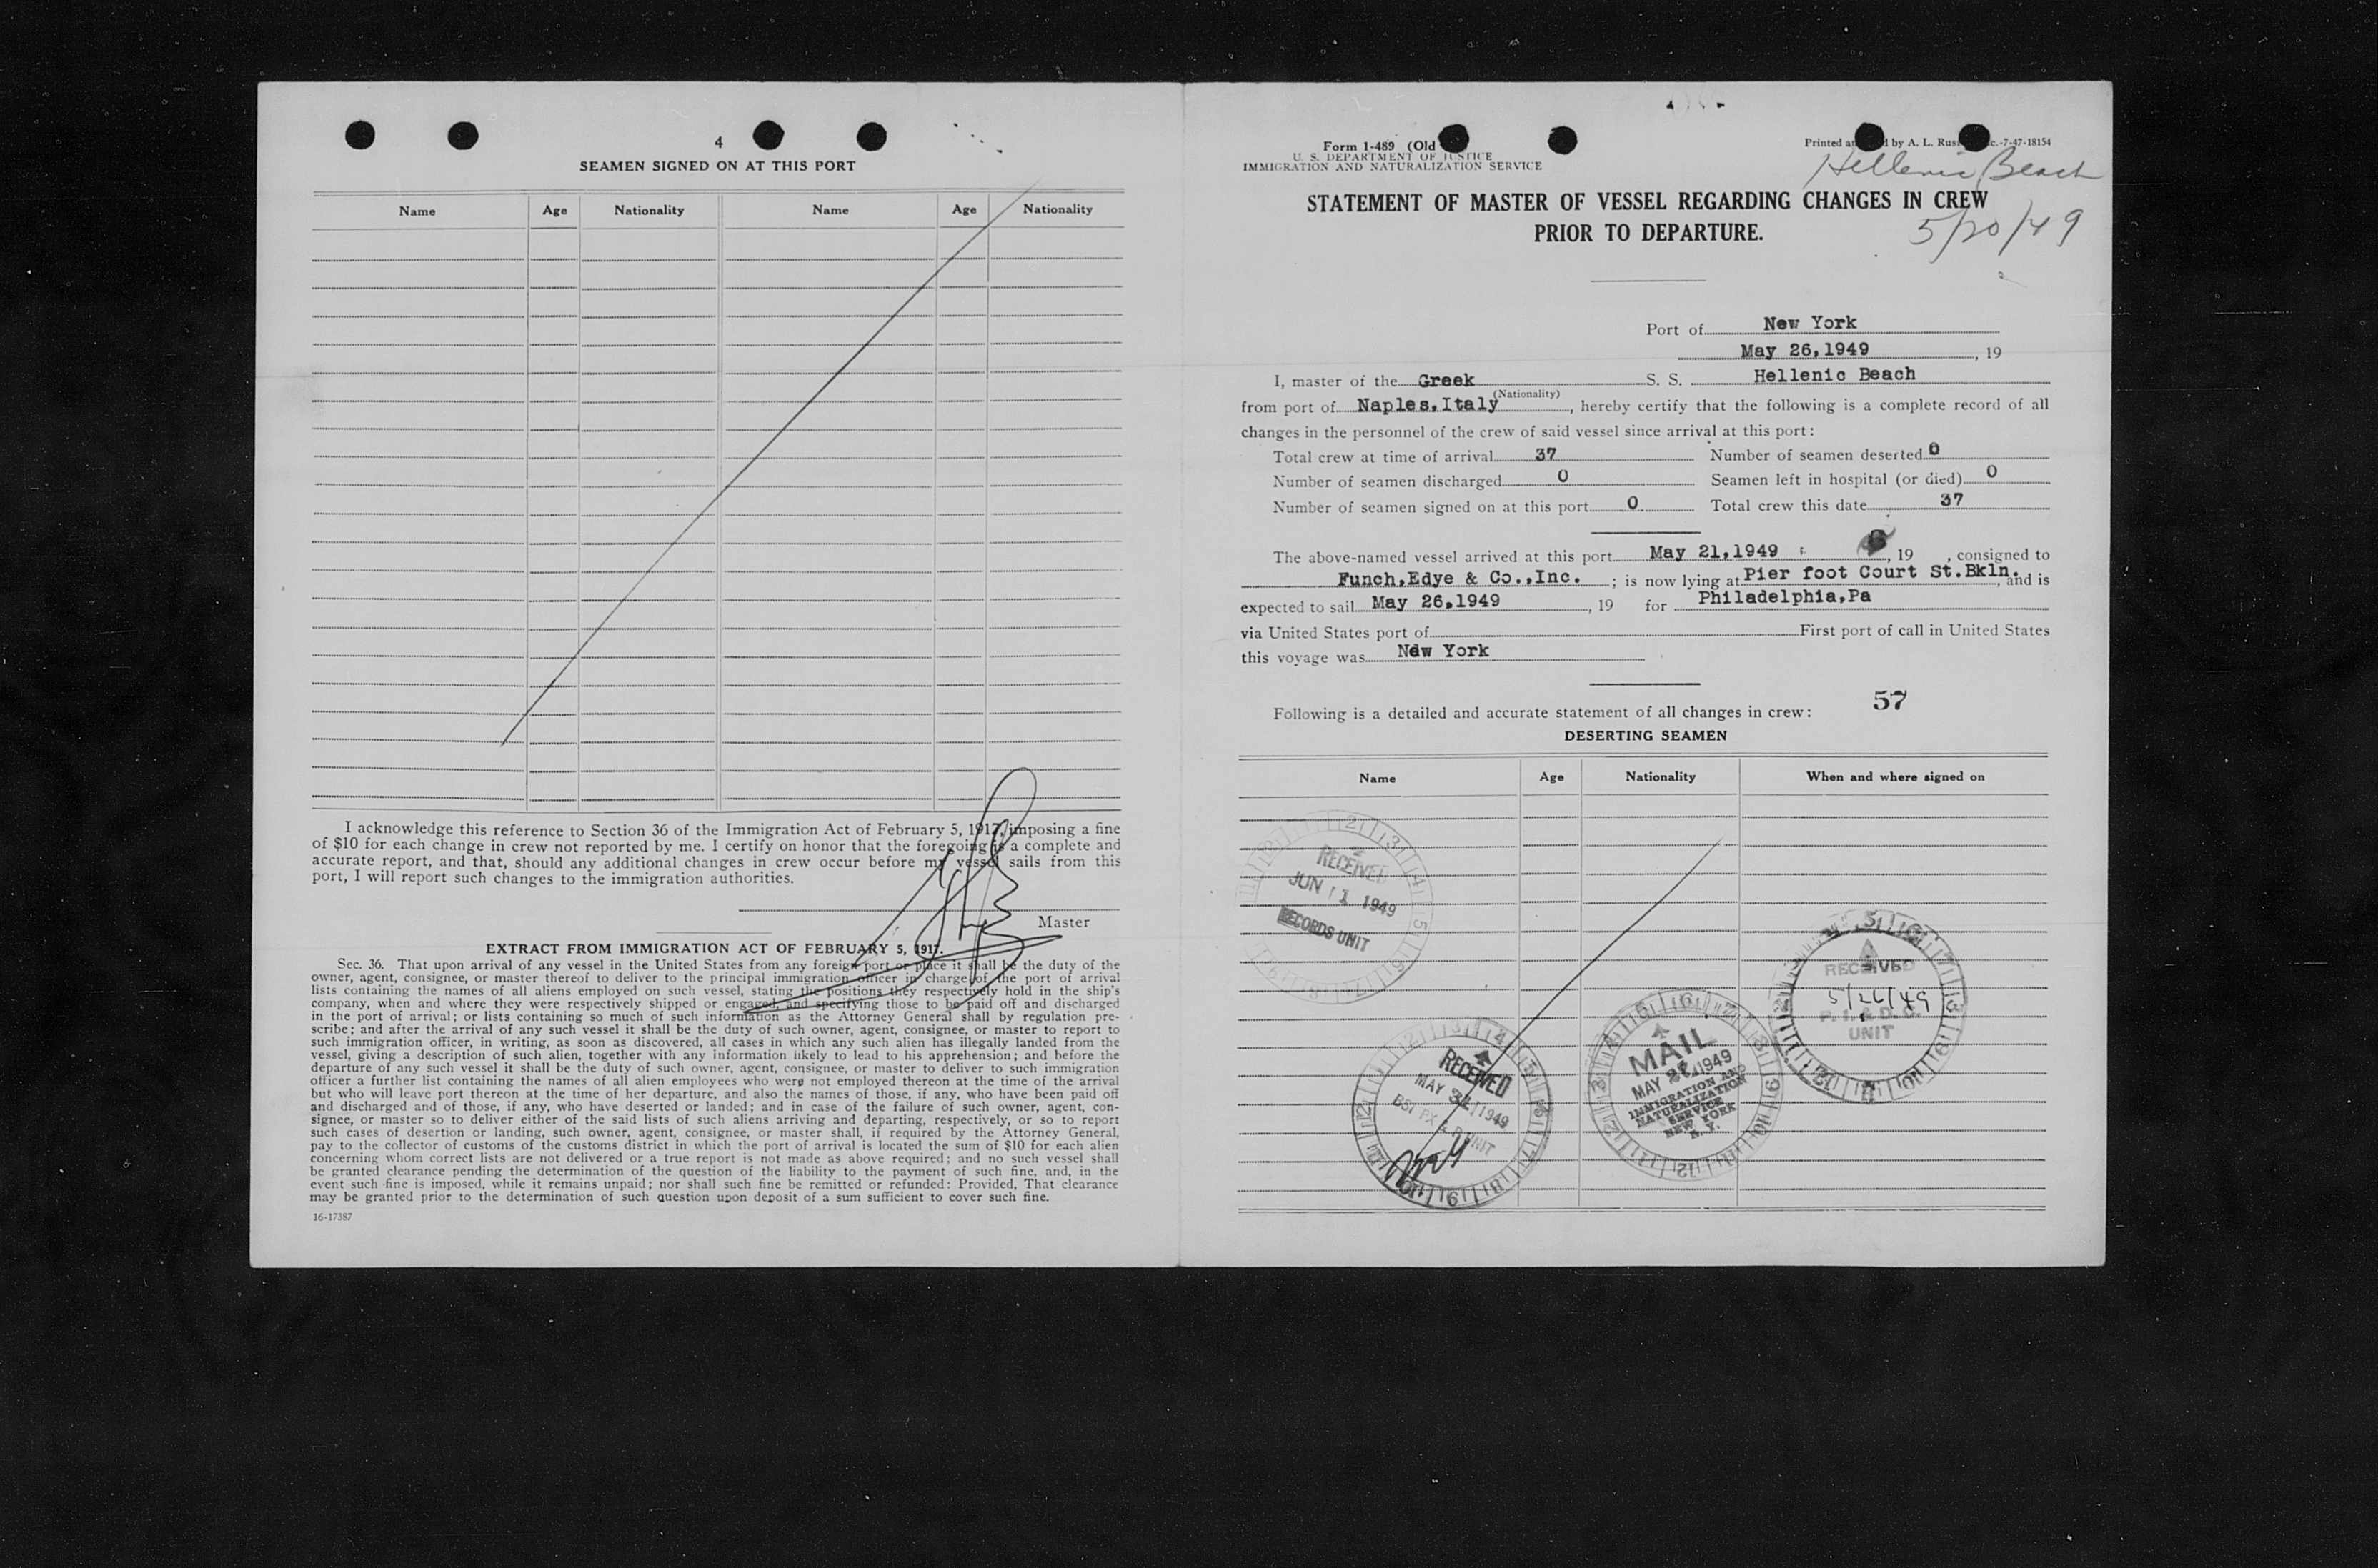 4
SEAMEN SIGNED ON AT THIS PORT
Name Age Nationality Name Age Nationality
I acknowledge this reference to Section 36 of the Immigration Act of February 5, 1917, imposing a fine
of $10 for each change in crew not reported by me. I certify on honor that the foregoing is a complete and
accurate report, and that, should any additional changes in crew occur before my vessel sails from this
port, I will report such changes to the immigration authorities.
Master
EXTRACT FROM IMMIGRATION ACT OF FEBRUARY 5, 1917.
Sec. 36. That upon arrival of any vessel in the United States from any foreign port or place it shall be the duty of the
owner, agent, consignee, or master thereof to deliver to the principal immigration officer in charge of the port of arrival
lists containing the names of all aliens employed on such vessel, stating the positions they respectively hold in the ship's
company, when and where they were respectively shipped or engaged, and specifying those to be paid off and discharged
in the port of arrival; or lists containing so much of such information as the Attorney General shall by regulation pre-
scribe; and after the arrival of any such vessel it shall be the duty of such owner, agent, consignee, or master to report to
such immigration officer, in writing, as soon as discovered, all cases in which any such alien has illegally landed from the
vessel, giving a description of such alien, together with any information likely to lead to his apprehension; and before the
departure of any such vessel it shall be the duty of such owner, agent, consignee, or master to deliver to such immigration
officer a further list containing the names of all alien employees who were not employed thereon at the time of the arrival
but who will leave port thereon at the time of her departure, and also the names of those, if any, who have been paid off
and discharged and of those, if any, who have deserted or landed; and in case of the failure of such owner, agent, con-
signee, or master so to deliver either of the said lists of such aliens arriving and departing, respectively, or so to report
such cases of desertion or landing, such owner, agent, consignee, or master shall, if required by the Attorney General,
pay to the collector of customs of the customs district in which the port of arrival is located the sum of $10 for each alien
concerning whom correct lists are not delivered or a true report is not made as above required; and no such vessel shall
be granted clearance pending the determination of the question of the liability to the payment of such fine, and, in the
event such fine is imposed, while it remains unpaid; nor shall such fine be remitted or refunded: Provided, That clearance
may be granted prior to the determination of such question upon deposit of a sum sufficient to cover such fine.
16-17387
Form I-489 (Old
U. S. DEPARTMENT OF JUSTICE
IMMIGRATION AND NATURALIZATION SERVICE
Printed by A. L. 7-47-18154
Hellenic Beach
STATEMENT OF MASTER OF VESSEL REGARDING CHANGES IN CREW
PRIOR TO DEPARTURE.
5/20/49
Port of New York
May 26,1949, 19
I, master of the Greek S. S. Hellenic Beach
(Nationality)
from port of Naples,Italy, hereby certify that the following is a complete record of all
changes in the personnel of the crew of said vessel since arrival at this port:
Total crew at time of arrival 37 Number of seamen deserted 0
Number of seamen discharged 0 Seamen left in hospital (or died) 0
Number of seamen signed on at this port 0 Total crew this date 37
The above-named vessel arrived at this port May 21,1949, 19 , consigned to
Funch,Edye & Co.,Inc. ; is now lying at Pier foot Court St.Bkln., and is
expected to sail May 26,1949, 19 for Philadelphia,Pa
via United States port of First port of call in United States
this voyage was New York
57
Following is a detailed and accurate statement of all changes in crew:
DESERTING SEAMEN
Name Age Nationality When and where signed on
RECEIVED
JUN 11 1949
RECORDS UNIT
RECEIVED
5/26/49
UNIT
MAIL
MAY 1949
IMMIGRATION AND
NATURALIZATION
SERVICE
NEW YORK
N. Y.
RECEIVED
MAY 1949
UNIT